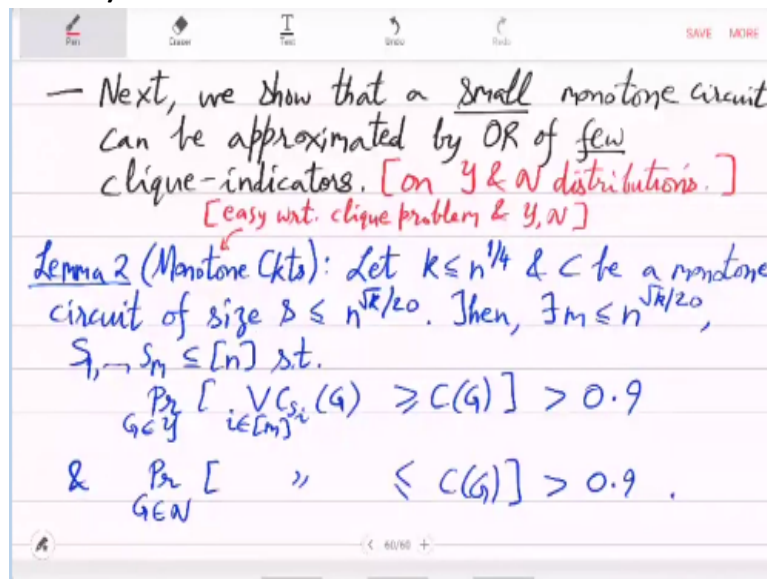 Pen Eraser Text Undo Redo SAVE MORE
— Next, we show that a small monotone circuit
can be approximated by OR of few
clique-indicators. [on Y & N distributions.]
[easy wrt. clique problem & Y, N]
Lemma 2 (Monotone Ckts): Let k ≤ n^{1/4} & C be a monotone
circuit of size s ≤ n^{√k/20}. Then, ∃m ≤ n^{√k/20},
S₁,→ Sₘ ⊆ [n] s.t.
Pr_{G∈Y} [ ⋁_{i∈[m]} C_{S_i}(G) ≥ C(G) ] > 0.9
& Pr_{G∈N} [ 〃 ≤ C(G) ] > 0.9 .
< 60/60 +